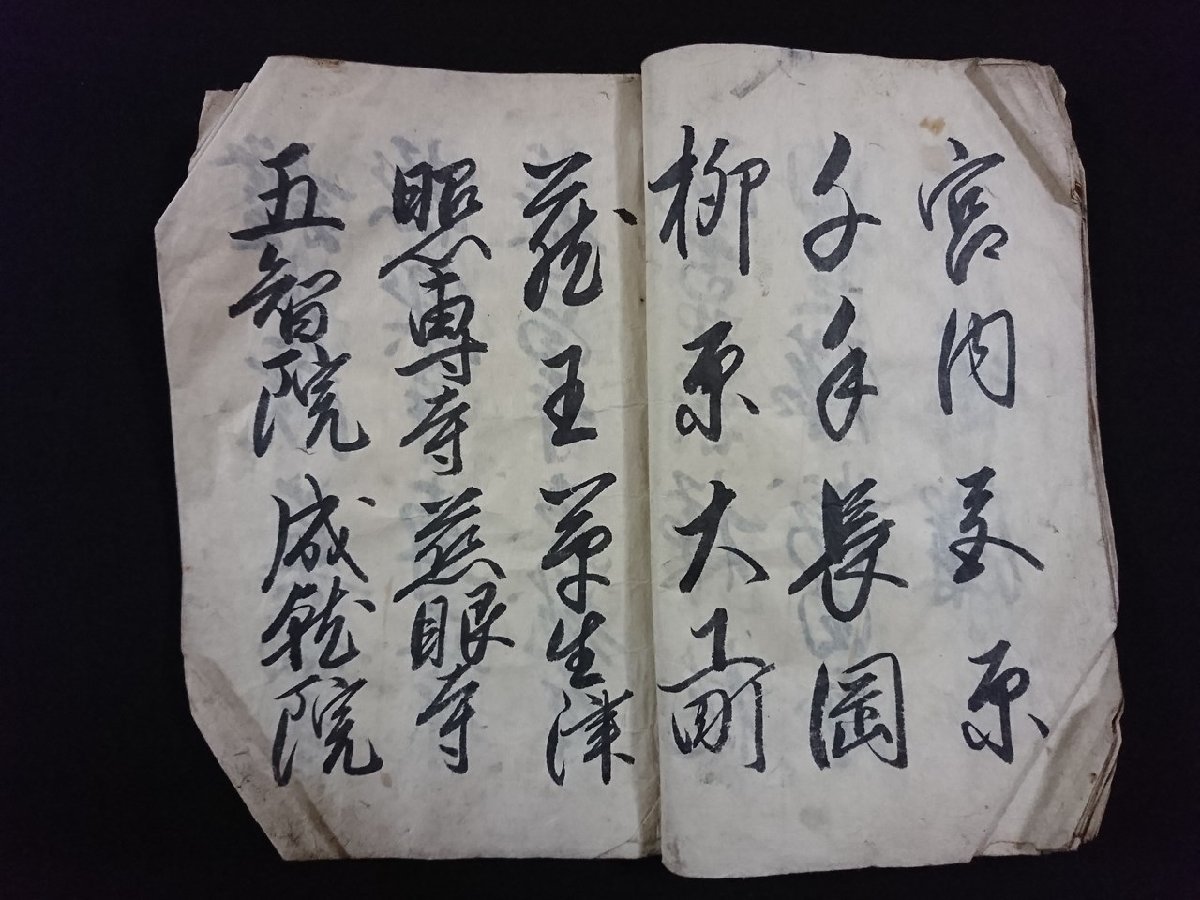 宮内支原
千手長岡
柳原大工町
蔵王草生津
照専寺慈眼寺
五智院成就院